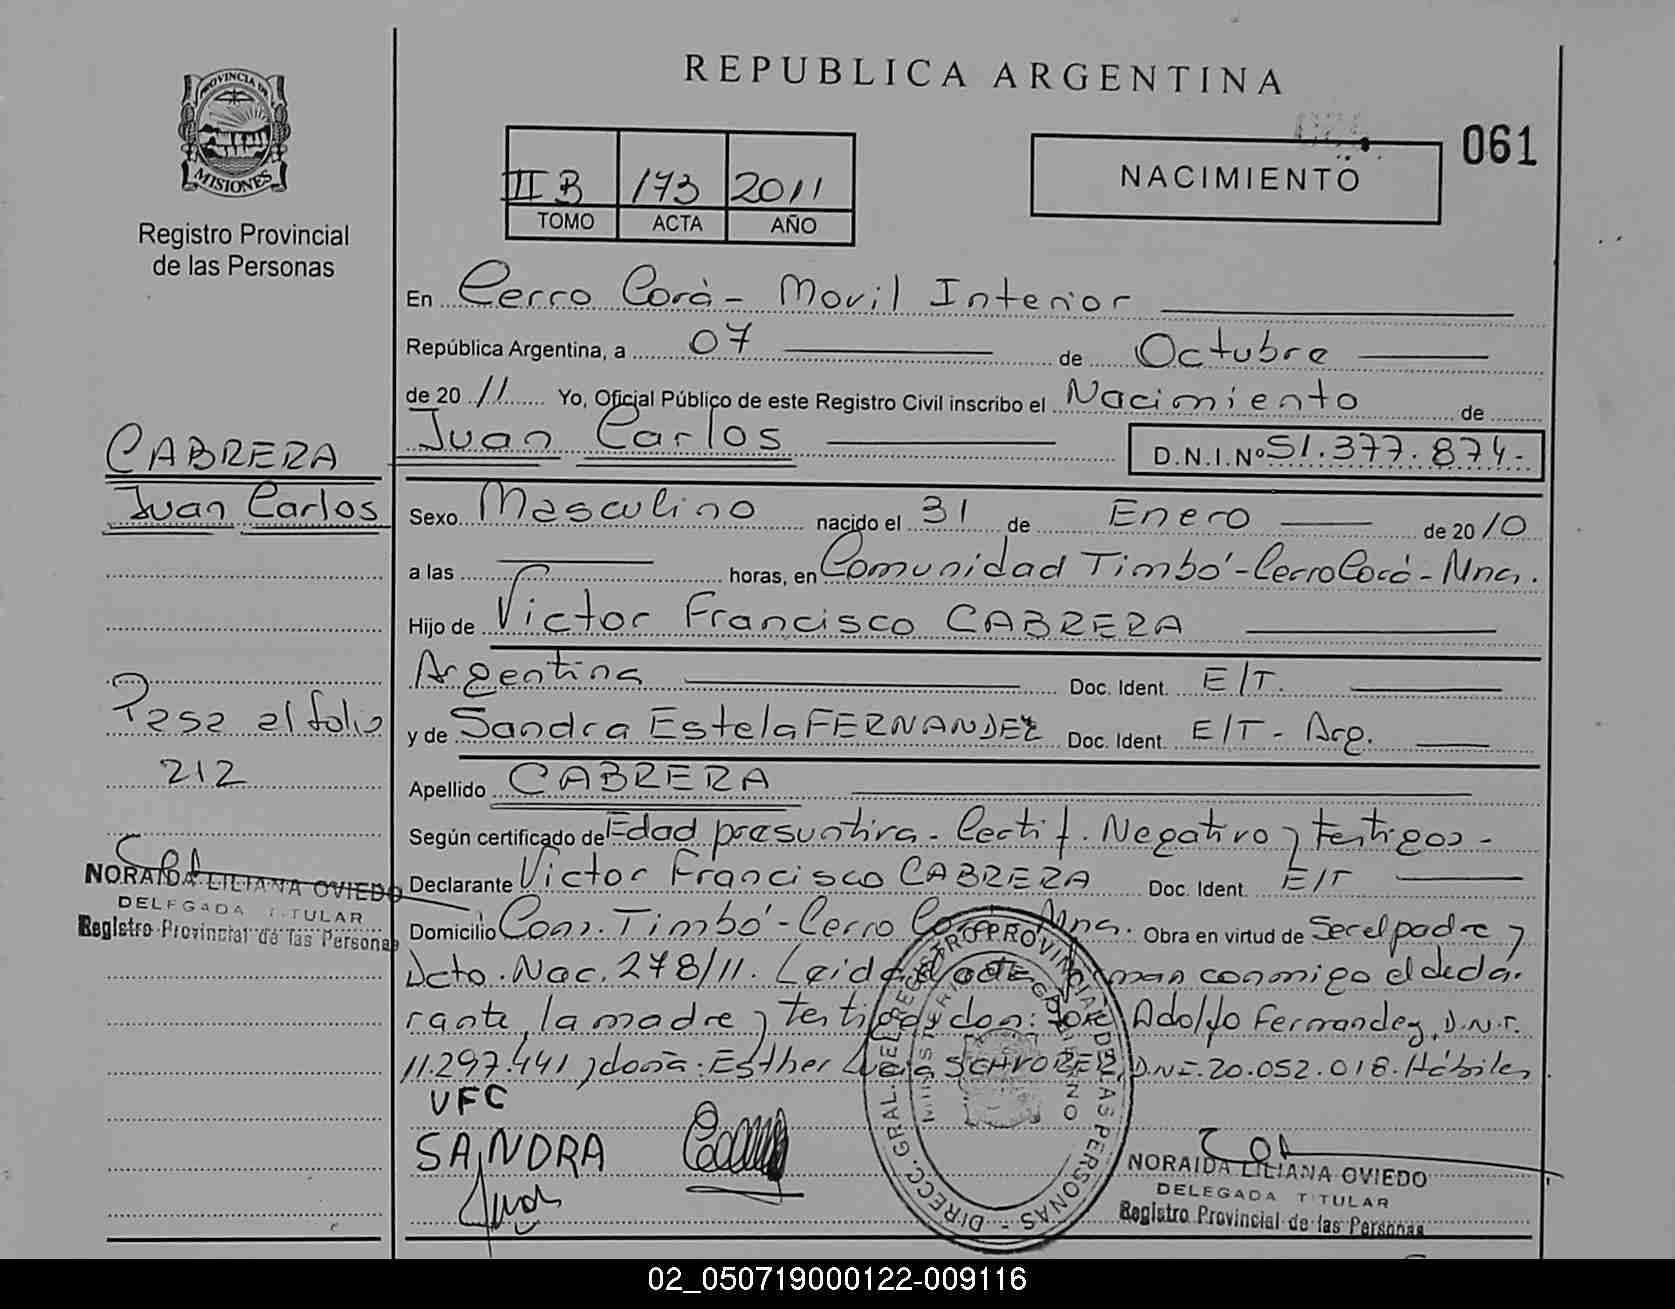 REPUBLICA ARGENTINA
PROVINCIA DE
MISIONES
Registro Provincial
de las Personas
II B 173 2011
TOMO ACTA AÑO
NACIMIENTO
061
En Cerro Corá - Movil Interior
República Argentina, a 07 de Octubre
de 2011 Yo, Oficial Público de este Registro Civil inscribo el Nacimiento de
Juan Carlos D.N.I.Nº 51.377.874-
CABRERA
Juan Carlos
Sexo Masculino nacido el 31 de Enero de 2010
a las horas, en Comunidad Timbó - Cerro Corá - Mnes.
Hijo de Victor Francisco CABRERA
Argentina Doc. Ident. E/T.
y de Sandra Estela FERNANDEZ Doc. Ident. E/T - Arg.
Pasa al folio
212
Apellido CABRERA
Según certificado de Edad presuntiva - Certif. Negativo y testigos -
Declarante Victor Francisco CABRERA Doc. Ident. E/T
Domicilio Com. Timbó - Cerro Corá Mnes. Obra en virtud de Ser el padre y
Dcto. Nac. 278/11. Leida el acta firman conmigo el decla-
rante, la madre y testigos don: José Adolfo Fernandez, D.N.I.
11.297.441 y doña: Esther Lucia SCHRODER, DNI: 20.052.018. Hábiles.
VFC
SANDRA
Juan
NORAIDA LILIANA OVIEDO
DELEGADA TITULAR
Registro Provincial de las Personas
DIRECC. GRAL. DEL REGISTRO PROVINCIAL DE LAS PERSONAS -
MINISTERIO DE GOBIERNO
NORAIDA LILIANA OVIEDO
DELEGADA TITULAR
Registro Provincial de las Personas
02_050719000122-009116